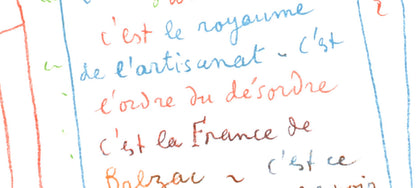 c'est le royaume
de l'artisanat ~ c'est
l'ordre du désordre
c'est la France de
Balzac ~ c'est ce